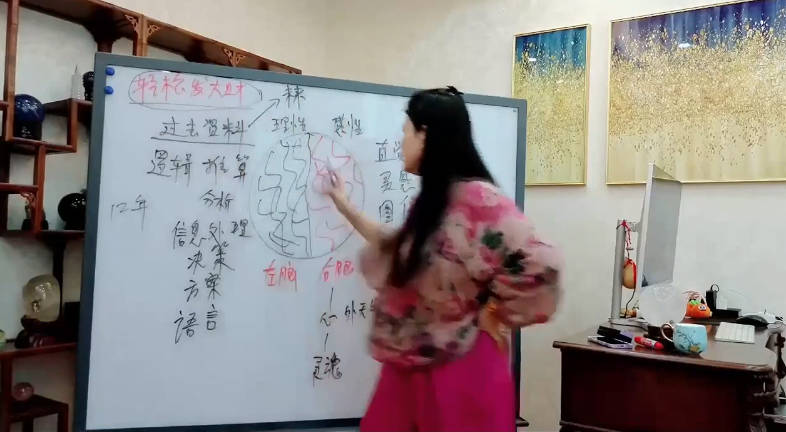 轻松发大财
过去资料
理性 感性
逻辑 推算
直
分析
灵感
12年
图
信息处理
决策
左脑 右脑
方案
心 外天
语言
灵魂